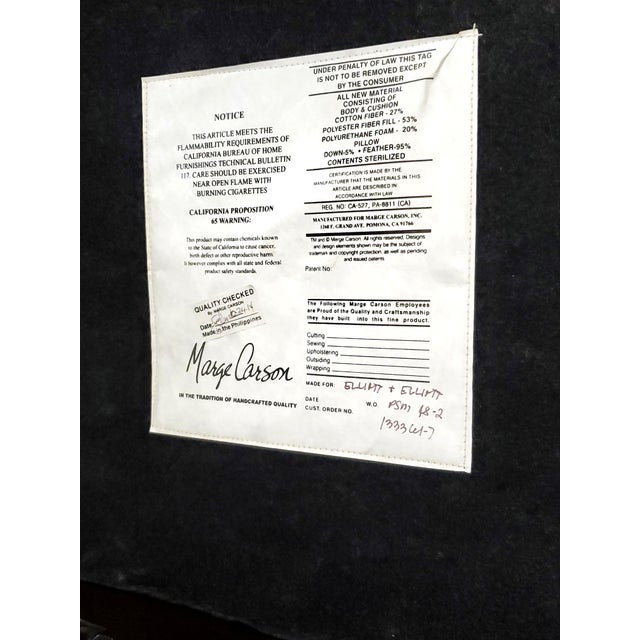 NOTICE
THIS ARTICLE MEETS THE
FLAMMABILITY REQUIREMENTS OF
CALIFORNIA BUREAU OF HOME
FURNISHINGS TECHNICAL BULLETIN
117. CARE SHOULD BE EXERCISED
NEAR OPEN FLAME WITH
BURNING CIGARETTES
CALIFORNIA PROPOSITION
65 WARNING:
This product may contain chemicals known
to the State of California to cause cancer,
birth defect or other reproductive harm.
It however complies with all state and federal
product safety standards.
QUALITY CHECKED
By MARGE CARSON
Date:
Made in the Philippines
Marge Carson
IN THE TRADITION OF HANDCRAFTED QUALITY
UNDER PENALTY OF LAW THIS TAG
IS NOT TO BE REMOVED EXCEPT
BY THE CONSUMER
ALL NEW MATERIAL
CONSISTING OF
BODY & CUSHION
COTTON FIBER - 27%
POLYESTER FIBER FILL - 53%
POLYURETHANE FOAM - 20%
PILLOW
DOWN-5% • FEATHER-95%
CONTENTS STERILIZED
CERTIFICATION IS MADE BY THE
MANUFACTURER THAT THE MATERIALS IN THIS
ARTICLE ARE DESCRIBED IN
ACCORDANCE WITH LAW
REG. NO: CA-527, PA-8811 (CA)
MANUFACTURED FOR MARGE CARSON, INC.
1260 F. GRAND AVE. POMONA, CA 91766
TM and © Marge Carson. All rights reserved. Designs
and design elements shown may be the subject of
trademark and copyright protection, as well as pending
and issued patents.
Patent No:
The Following Marge Carson Employees
are Proud of the Quality and Craftsmanship
they have built into this fine product.
Cutting
Sewing
Upholstering
Outsiding
Wrapping
MADE FOR: ELLIOTT + ELLIOTT
DATE W.O. PSM 48-2
CUST. ORDER NO.